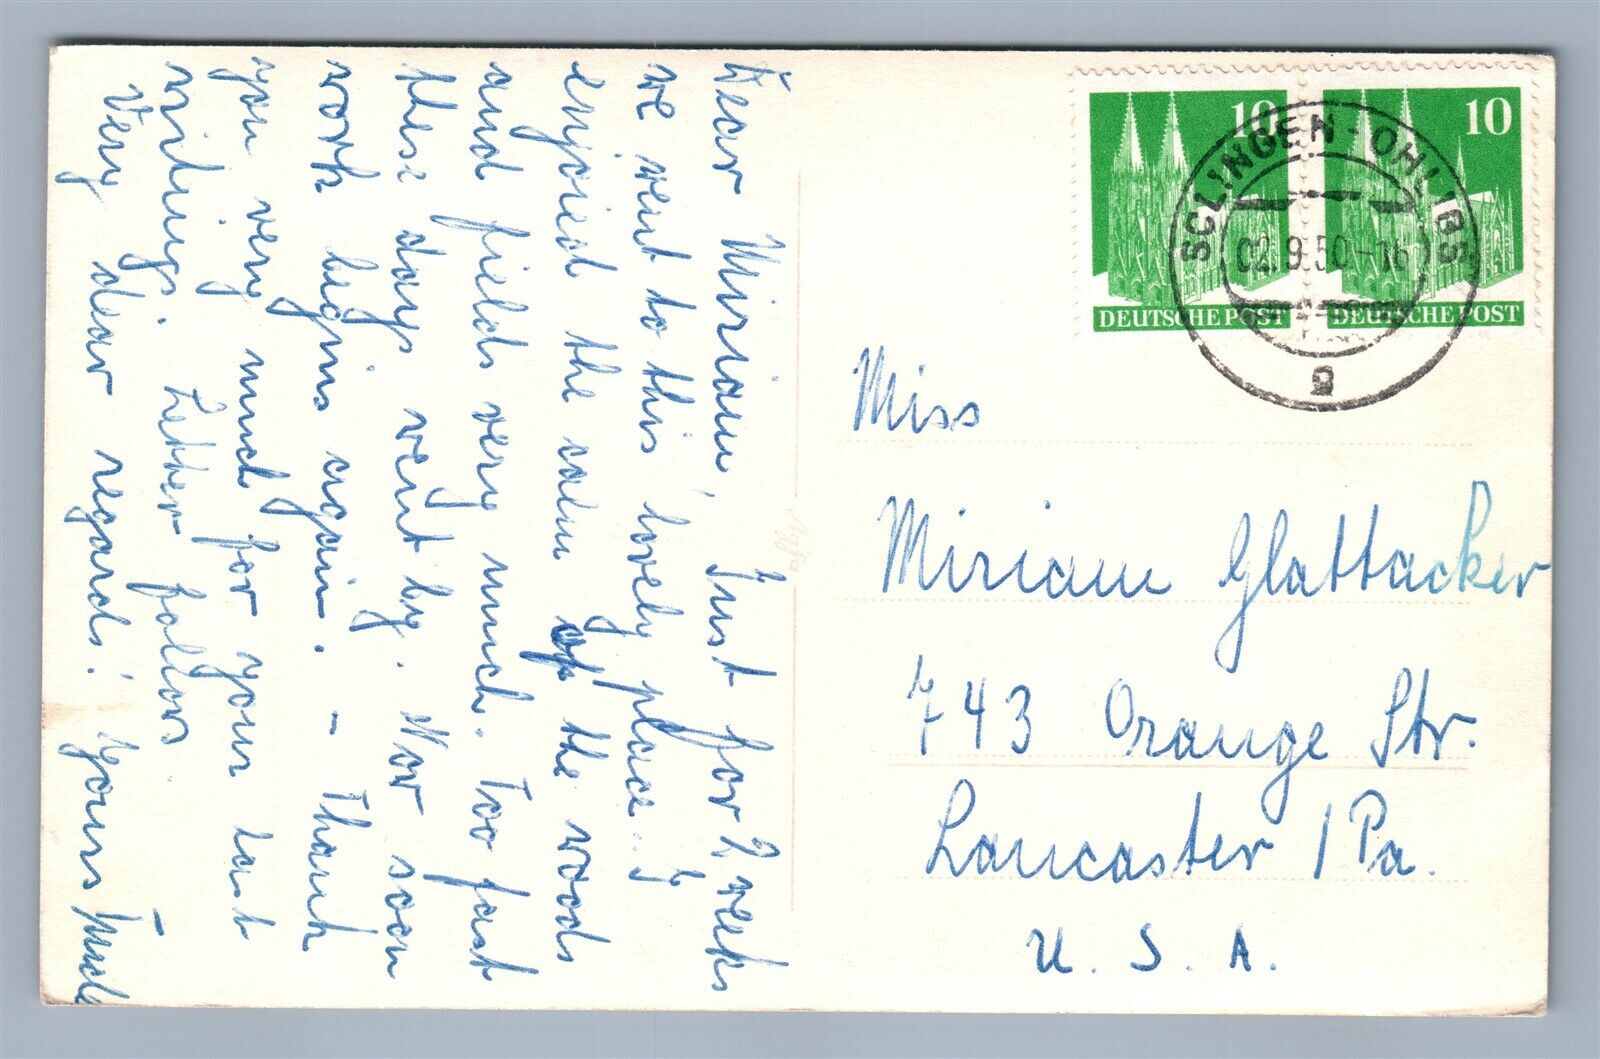 Dear Miriam, Just for 2 weeks
we went to this lovely place. I
enjoied the calm of the woods
and fields very much. Too fast
these days went by. Now soon
work begins again. – Thank
you very much for your last
writings. Letter follows.
Very dear regards! Yours
10
10
DEUTSCHE POST
DEUTSCHE POST
02.9.50-16
a
Miss
Miriam Glattacker
743 Orange Str.
Lancaster / Pa.
U. S. A.